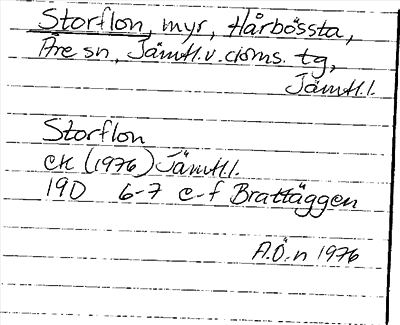 Storflon, myr, Hårbössta,
Åre sn, Jämtl.v. doms. tg,
Jämtl.l.
Storflon
ek (1976) Jämtl.l.
19D 6-7 e-f Brattäggen
A.Ö:n 1976